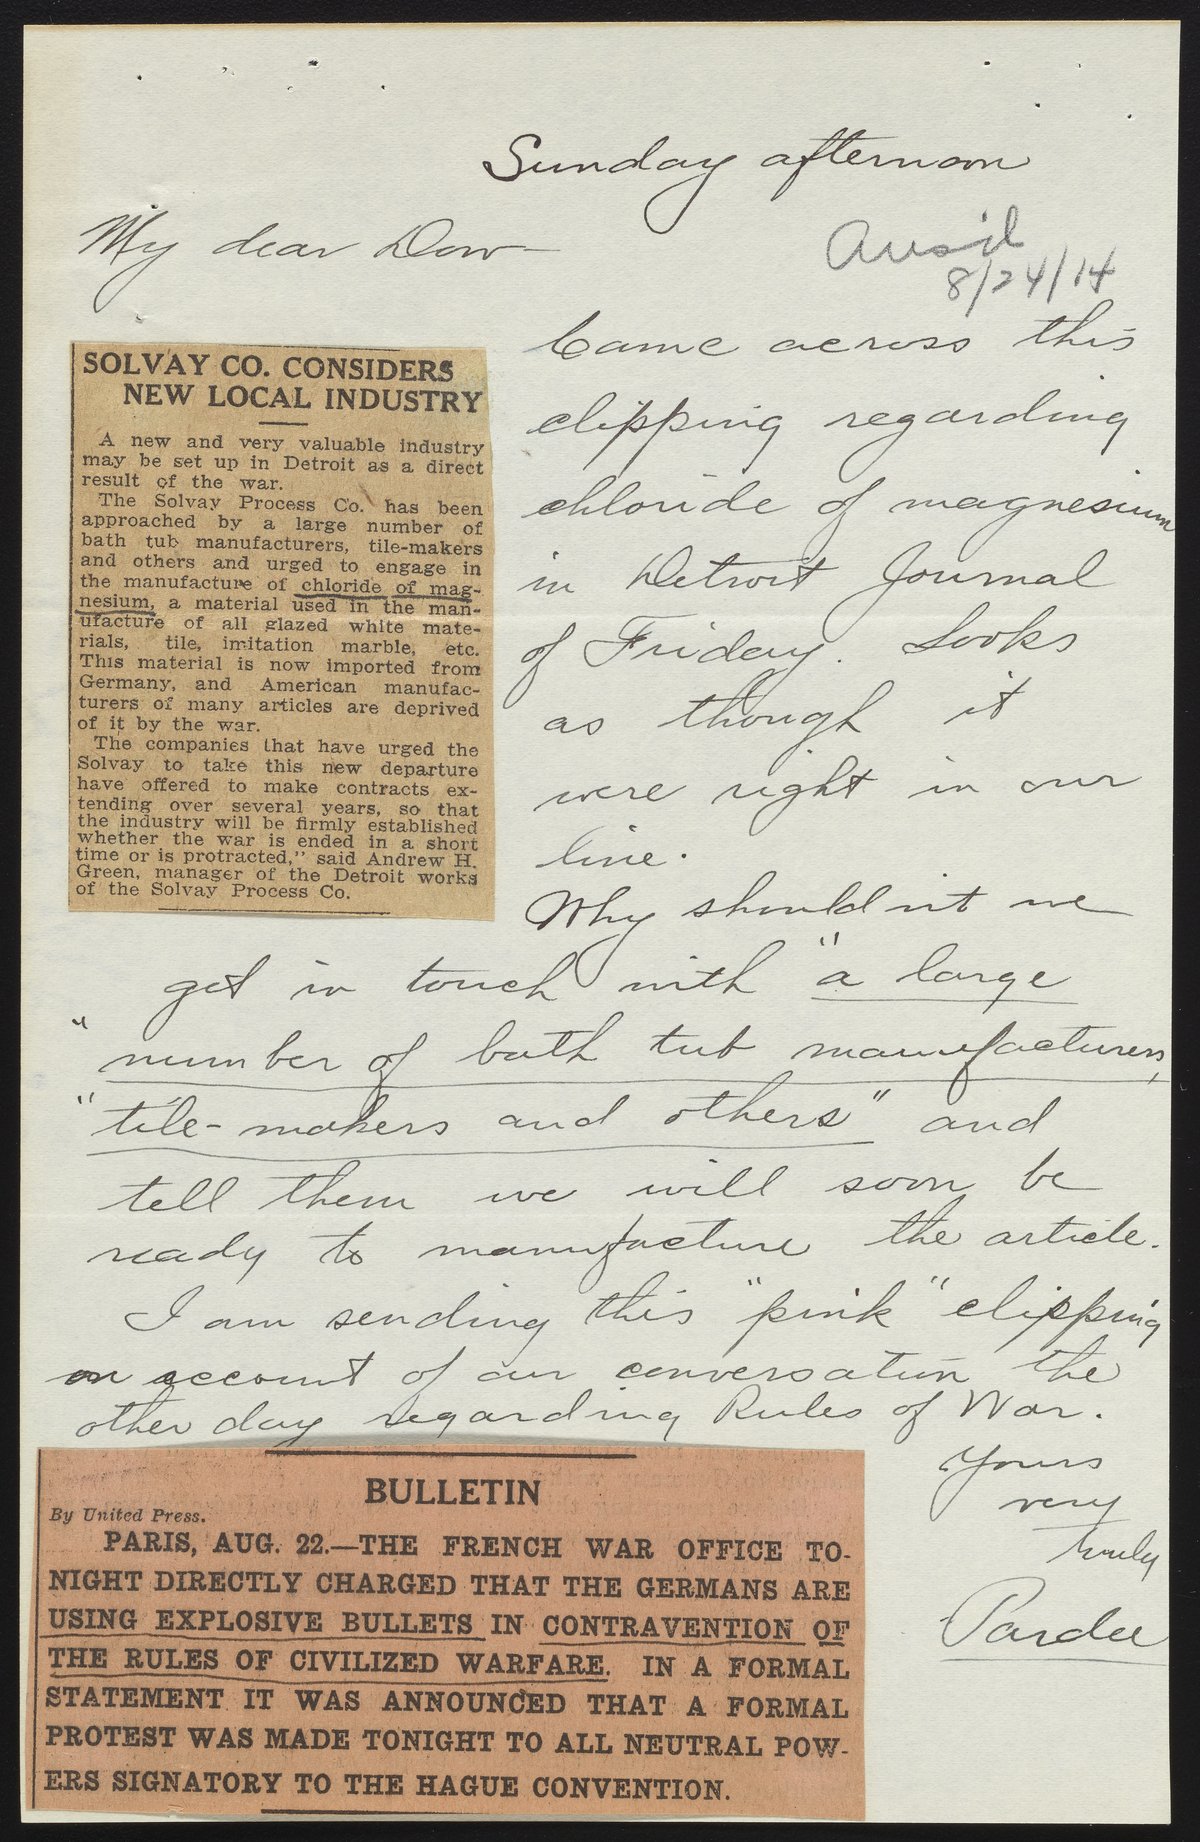 Sunday afternoon
My dear Dow
8/24/14
SOLVAY CO. CONSIDERS
NEW LOCAL INDUSTRY
A new and very valuable industry
may be set up in Detroit as a direct
result of the war.
The Solvay Process Co. has been
approached by a large number of
bath tub manufacturers, tile-makers
and others and urged to engage in
the manufacture of chloride of mag-
nesium, a material used in the man-
ufacture of all glazed white mate-
rials, tile, imitation marble, etc.
This material is now imported from
Germany, and American manufac-
turers of many articles are deprived
of it by the war.
The companies that have urged the
Solvay to take this new departure
have offered to make contracts ex-
tending over several years, so that
the industry will be firmly established
whether the war is ended in a short
time or is protracted," said Andrew H.
Green, manager of the Detroit works
of the Solvay Process Co.
Came across this
clipping regarding
chloride of magnesium
in Detroit Journal
of Friday. Looks
as though it
were right in our
line.
Why should n't we
get in touch with "a large
"number of bath tub manufacturers,
"tile-makers and others" and
tell them we will soon be
ready to manufacture the article.
I am sending this "pink" clipping
on account of our conversation the
other day regarding Rules of War.
Yours
very
truly
Pardee
BULLETIN
By United Press.
PARIS, AUG. 22.—THE FRENCH WAR OFFICE TO-
NIGHT DIRECTLY CHARGED THAT THE GERMANS ARE
USING EXPLOSIVE BULLETS IN CONTRAVENTION OF
THE RULES OF CIVILIZED WARFARE. IN A FORMAL
STATEMENT IT WAS ANNOUNCED THAT A FORMAL
PROTEST WAS MADE TONIGHT TO ALL NEUTRAL POW-
ERS SIGNATORY TO THE HAGUE CONVENTION.